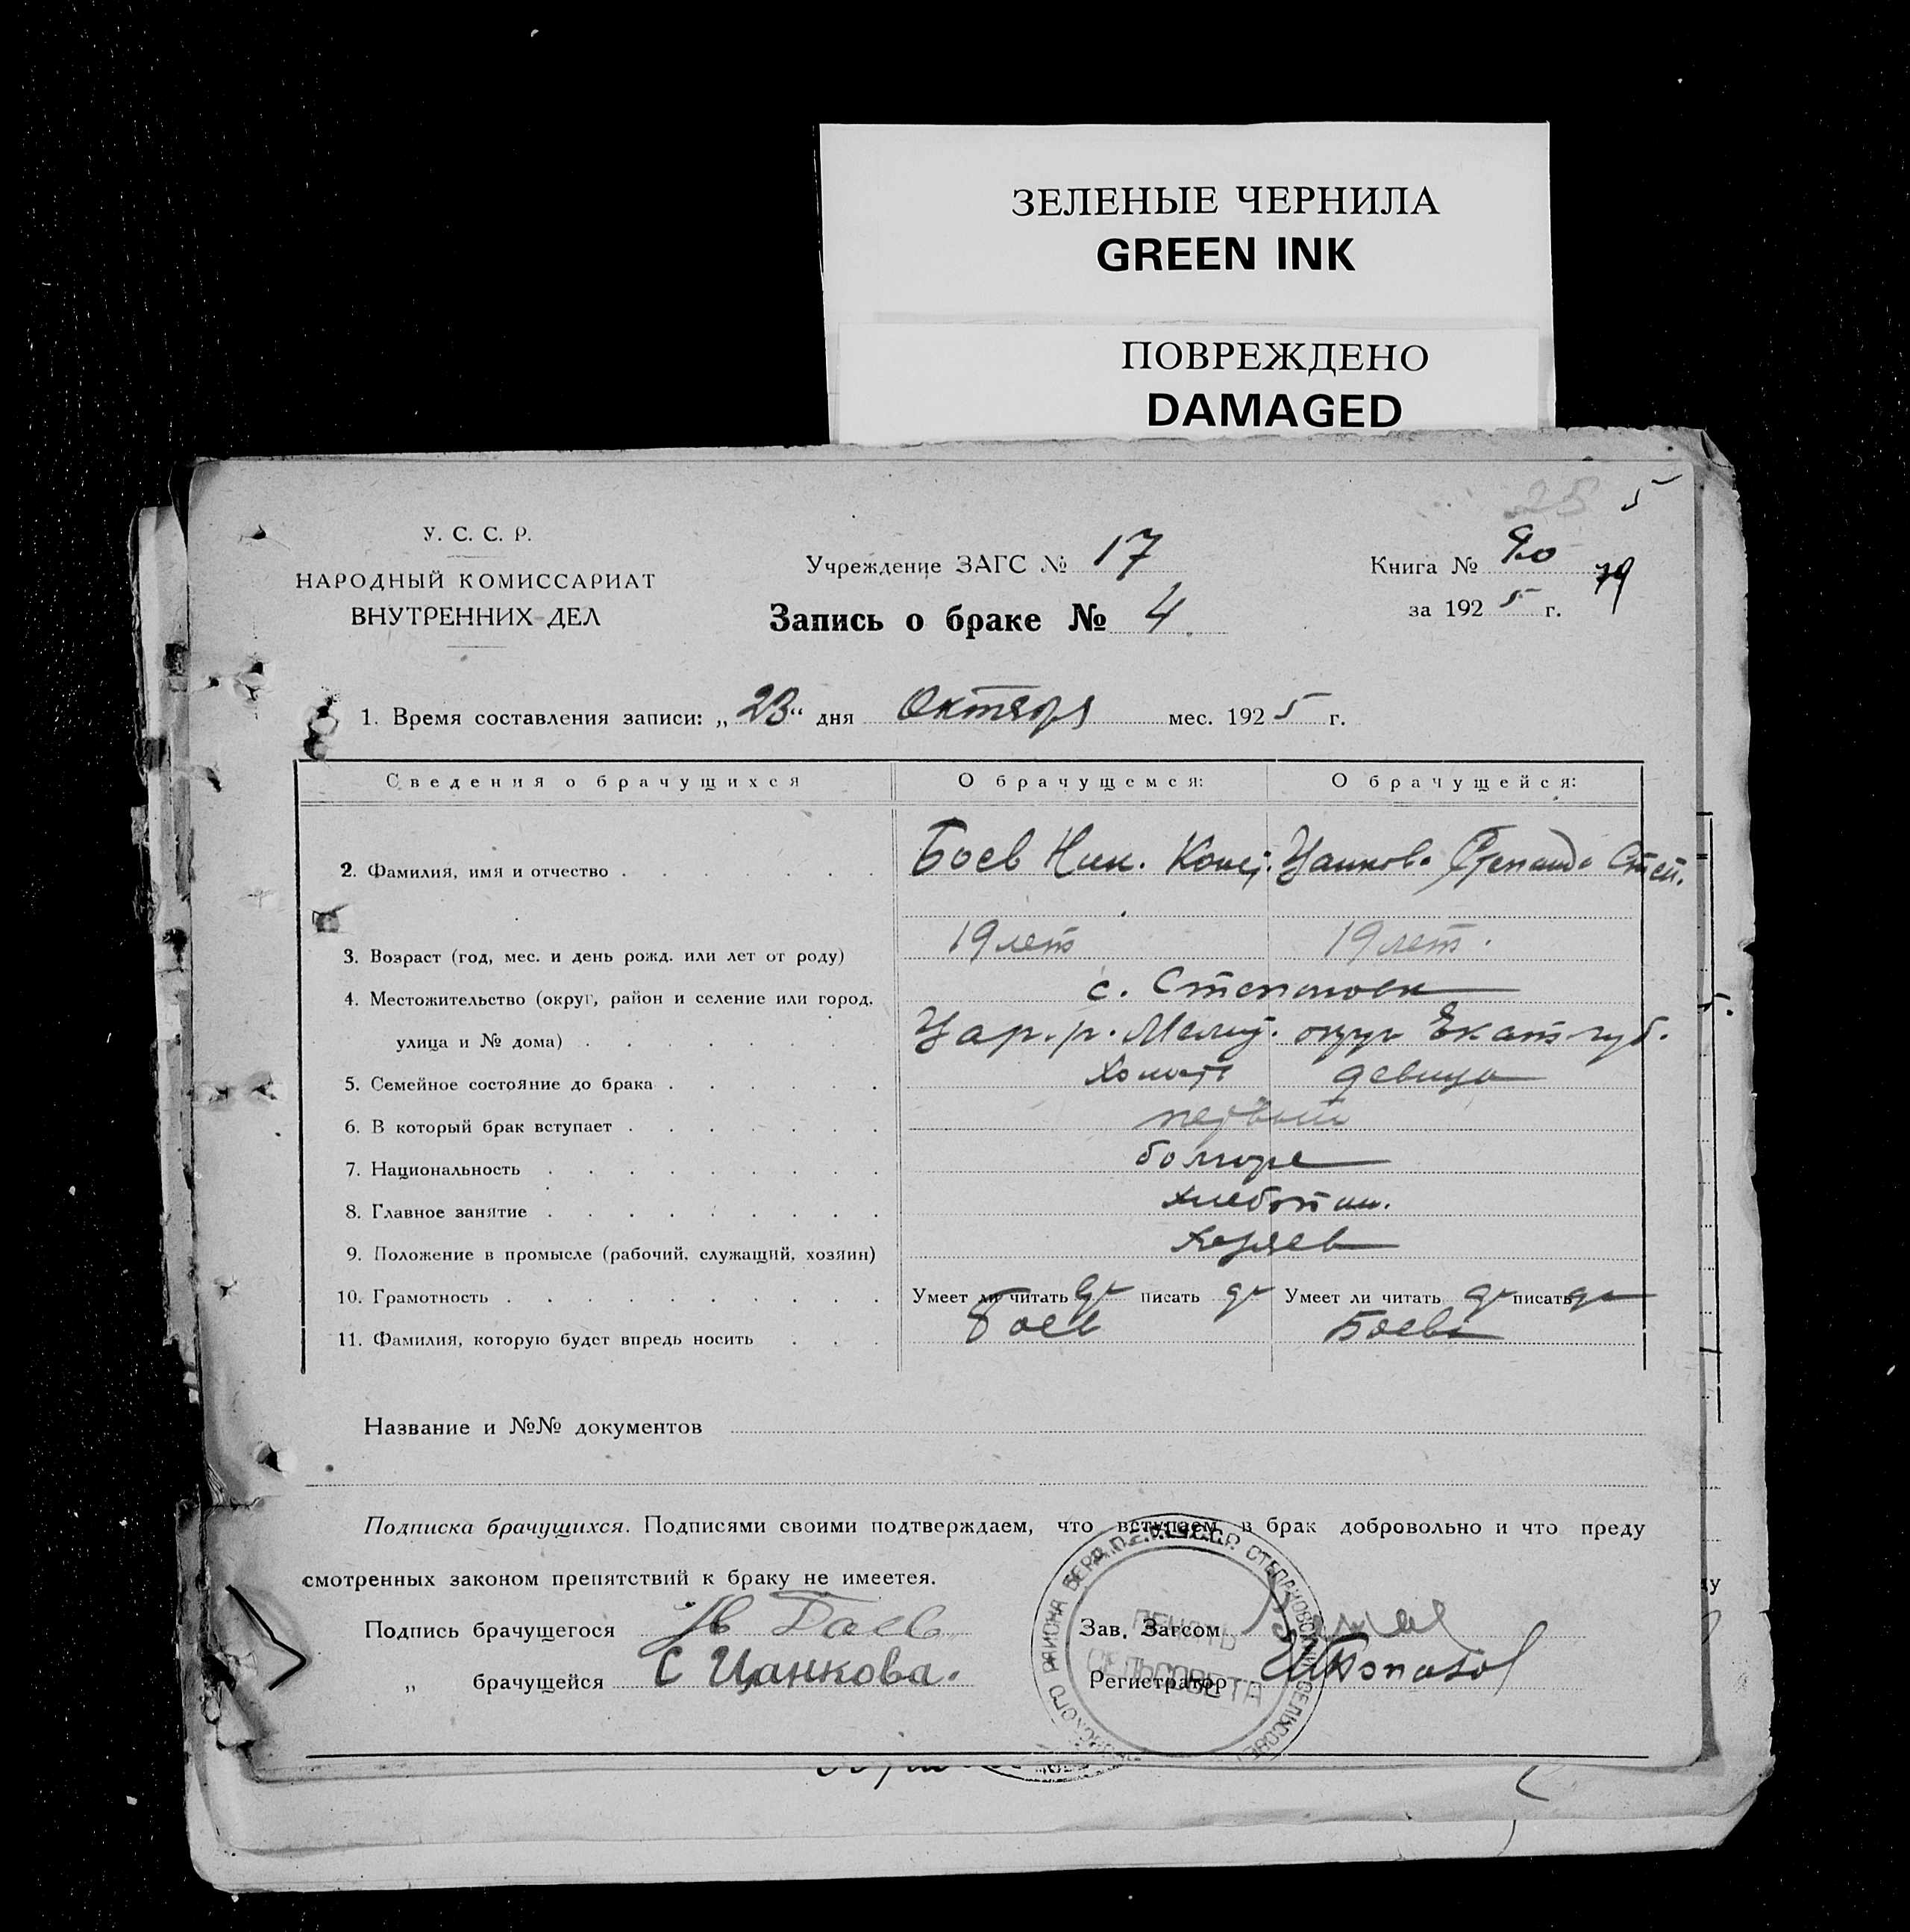 ЗЕЛЕНЫЕ ЧЕРНИЛА
GREEN INK
ПОВРЕЖДЕНО
DAMAGED
25 5
У. С. С. Р.
НАРОДНЫЙ КОМИССАРИАТ
ВНУТРЕННИХ ДЕЛ
Учреждение ЗАГС № 17
Запись о браке № 4.
Книга № 79
за 1925 г.
1. Время составления записи: „23“ дня Октября мес. 1925 г.
Сведения о брачущихся О брачущемся: О брачущейся:
2. Фамилия, имя и отчество Боев Ник. Цанкова Степанида Степ.
3. Возраст (год, мес. и день рожд. или лет от роду) 19 лет 19 лет.
4. Местожительство (округ, район и селение или город, с. Степановка
улица и № дома) Цар. р. Мелит. округ Екат. губ.
5. Семейное состояние до брака холост девица
6. В который брак вступает первый
7. Национальность болгаре
8. Главное занятие хлебопаш.
9. Положение в промысле (рабочий, служащий, хозяин)
10. Грамотность Умеет ли читать да писать да Умеет ли читать да писать да
11. Фамилия, которую будет впредь носить Боев Боева
Название и №№ документов
Подписка брачущихся. Подписями своими подтверждаем, что вступаем в брак добровольно и что преду
смотренных законом препятствий к браку не имеется.
Подпись брачущегося Боев Зав. Загсом
„ брачущейся С Цанкова. Регистратор
ПЕЧАТЬ
СЕЛЬСОВЕТА